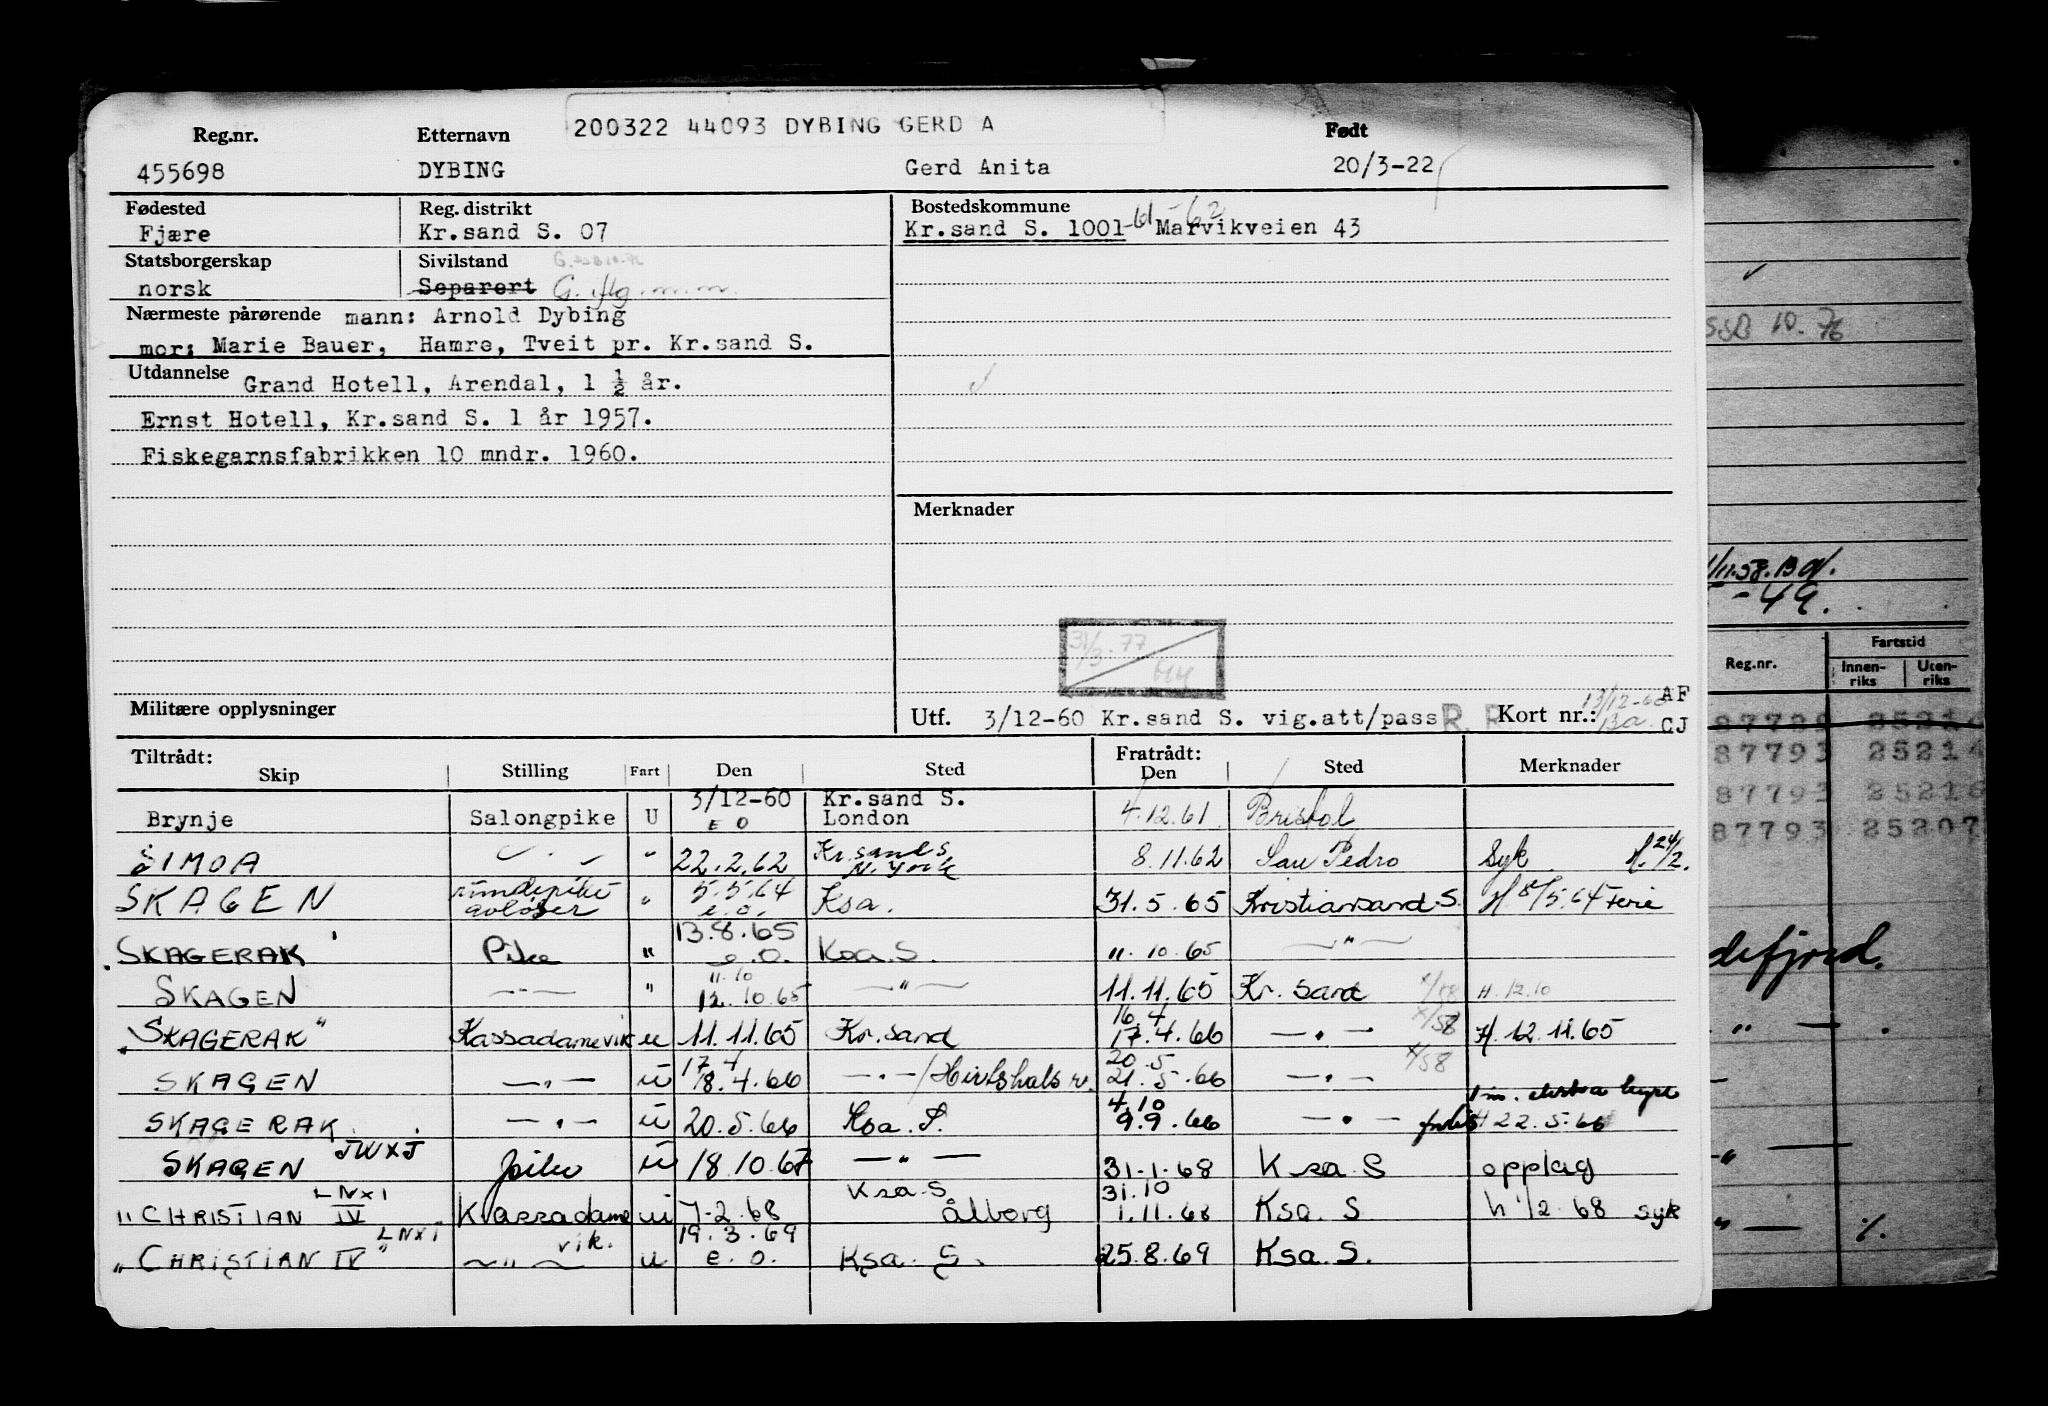 200322 44093 DYBING GERD A
Reg.nr. Etternavn Født
455698 DYBING Gerd Anita 20/3-22
Fødested Reg. distrikt Bostedskommune
Fjære Kr.sand S. 07 Kr.sand S. 1001 -61 -62 Marvikveien 43
Statsborgerskap Sivilstand
norsk Separert G.
Nærmeste pårørende mann: Arnold Dybing
mor: Marie Bauer, Hamre, Tveit pr. Kr.sand S.
Utdannelse Grand Hotell, Arendal, 1 1/2 år.
Ernst Hotell, Kr.sand S. 1 år 1957.
Fiskegarnsfabrikken 10 mndr. 1960.
Merknader
31/3.77
Militære opplysninger
Utf. 3/12-60 Kr.sand S. vig.att/pass R. R Kort nr.: 13/12-60 Ba. AF CJ
Tiltrådt: Fratrådt:
Skip Stilling Fart Den Sted Den Sted Merknader
Brynje Salongpike U 3/12-60 E O Kr.sand S. London 4.12.61 Bristol
SIMOA " 22.2.62 Kr.sand S N. York 8.11.62 San Pedro Syk H.24/2.
SKAGEN avløser " 5.5.64 e.o. Ksa. 31.5.65 Kristiansand S. H 8/5.64 Ferie
SKAGERAK Pike " 13.8.65 e.o. Ksa. S. 11.10.65 — " —
SKAGEN — " — " 11.10 12.10.65 — " — 11.11.65 Kr. sand H. 12.10
"SKAGERAK" Kassadamevik u 11.11.65 Kr.sand 16.4 17.4.66 — " — x/58 H. 12.11.65
SKAGEN — " — u 17.4 18.4.66 — " — / Hirtshals 20.5 21.5.66 — " — x/58
SKAGERAK — " — u 20.5.66 Ksa. S. 4.10 9.9.66 — " — H 22.5.66
SKAGEN JWXJ pike u 18.10.67 — " — 31.1.68 Ksa S opplag
"CHRISTIAN IV LNXI Kassadame vik. u 7-2.68 Ksa. S Ålborg 31.10 1.11.68 Ksa. S h 1/2 68 syk
"CHRISTIAN IV" LNXI — " — u 19.3.69 e.o. Ksa. S. 25.8.69 Ksa. S.
SSB 10.76
11.58.
-49.
Reg.nr. Fartstid
Innenriks Utenriks
87793 25214
87793 25216
87793 25207
defjord.
" — .
" —
" — %